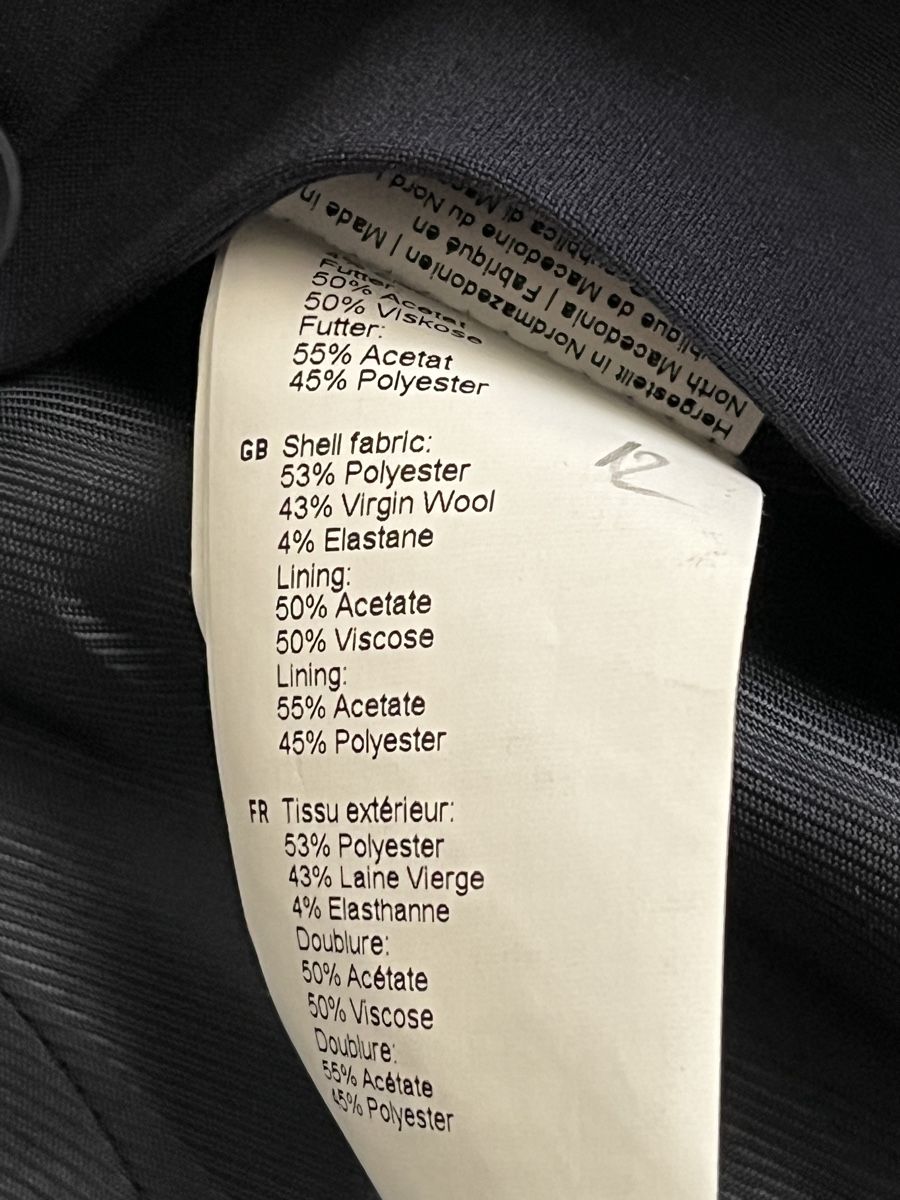 Hergestellt in Nordmazedonien | Made in
North Macedonia | Fabriqué en
de Macédoine du Nord |
Futter:
50% Acetat
50% Viskose
Futter:
55% Acetat
45% Polyester
12
GB Shell fabric:
53% Polyester
43% Virgin Wool
4% Elastane
Lining:
50% Acetate
50% Viscose
Lining:
55% Acetate
45% Polyester
FR Tissu extérieur:
53% Polyester
43% Laine Vierge
4% Elasthanne
Doublure:
50% Acétate
50% Viscose
Doublure:
55% Acétate
45% Polyester